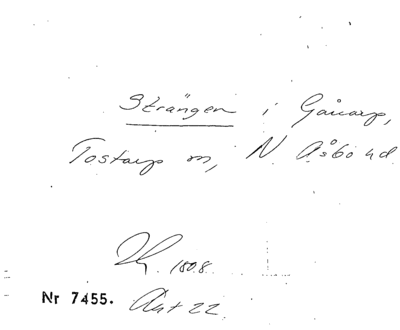 Strängen i Gåarp,
Tostarp m, N Åsbo hd
1808.
Nr 7455. Akt 22